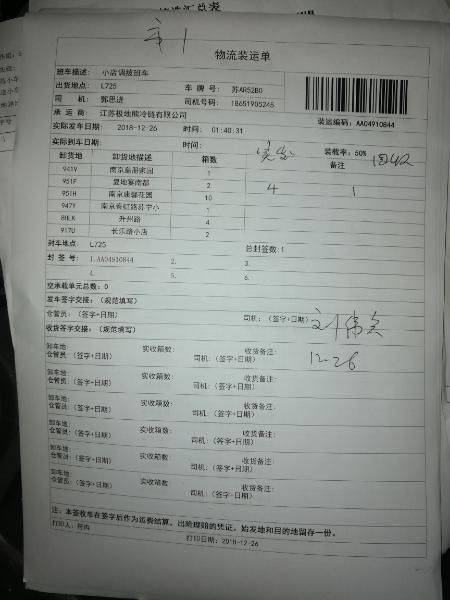 物流装运单
班车描述： 小店调拨班车
出货地点： L725 车 牌 号： 苏AR52B0
司 机： 郭思涟 司机号码： 18651905245
承 运 商： 江苏极地熊冷链有限公司 装运编码：AA04910844
实际发车日期： 2018-12-26 时间： 01:40:31
实际到车日期： 时间： 装载率：50%
卸货地 卸货地描述 箱数 备注
941V 南京 家园 1
951F 复地宴南都 2 4 1
951H 南京康馨花园 10
947Y 南京 虹路苏宁小 1
8HLK 升州路 4
917U 长乐路小店 2
封车地点： L725 总封签数：1
封 签 号： 1.AA04910844 2. 3.
4. 5. 6.
空承载单元总数：0
发车签字交接：（规范填写）
仓管员：（签字+日期） 司机：（签字+日期）
收货签字交接：（规范填写） 12-26
卸车地： 实收箱数： 收货备注：
仓管员：（签字+日期） 司机：（签字+日期）
卸车地： 实收箱数： 收货备注：
仓管员：（签字+日期） 司机：（签字+日期）
卸车地： 实收箱数： 收货备注：
仓管员：（签字+日期） 司机：（签字+日期）
卸车地： 实收箱数： 收货备注：
仓管员：（签字+日期） 司机：（签字+日期）
卸车地： 实收箱数： 收货备注：
仓管员：（签字+日期） 司机：（签字+日期）
卸车地： 实收箱数： 收货备注：
仓管员：（签字+日期） 司机：（签字+日期）
注：本签收单在签字后作为运费结算、出险理赔的凭证，始发地和目的地留存一份。
打印人： 打印日期：2018-12-26